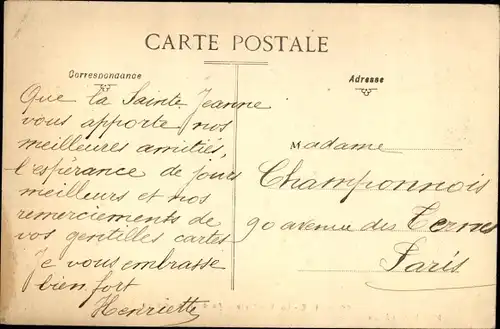 CARTE POSTALE
Correspondance
Adresse
Que la Sainte Jeanne
vous apporte nos
meilleures amitiés,
l'espérance de jours
meilleurs et nos
remerciements de
vos gentilles cartes
Je vous embrasse
bien fort
Henriette
Madame
Champonnois
90 avenue des Ternes
Paris